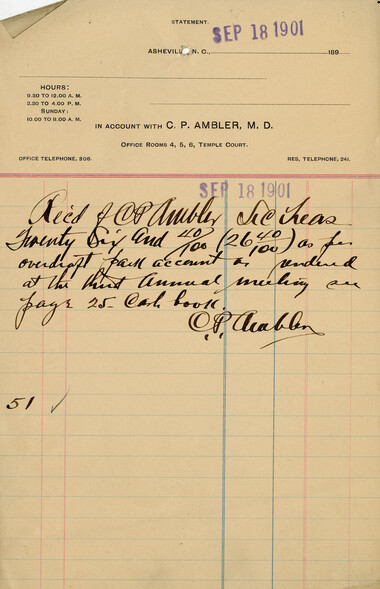 STATEMENT.
SEP 18 1901
ASHEVILLE, N. C., 189
HOURS:
9.30 TO 12.00 A. M.
2.30 TO 4.00 P. M.
SUNDAY:
10.00 TO 11.00 A. M.
IN ACCOUNT WITH C. P. AMBLER, M. D.
OFFICE ROOMS 4, 5, 6, TEMPLE COURT.
OFFICE TELEPHONE, 306.
RES, TELEPHONE, 241.
SEP 18 1901
Rec'd of C P Ambler Sec Treas
Twenty Six and 40/100 (26 40/100) as per
overdraft park account as rendered
at the first Annual meeting see
page 25 - Cash book.
C. P. Ambler
51 ✓